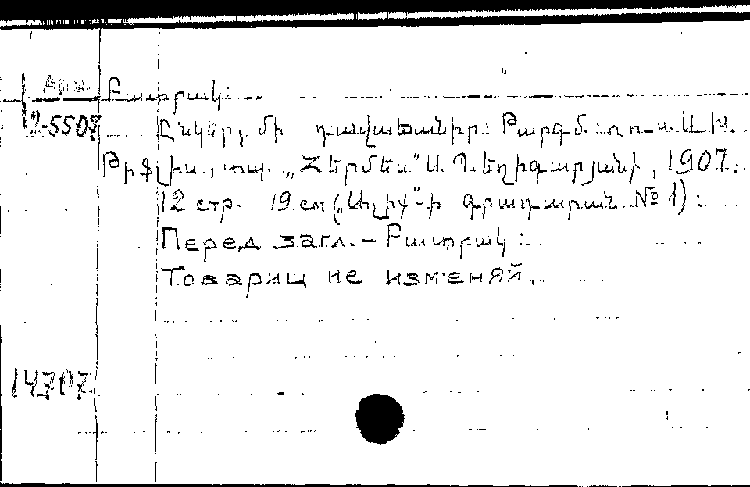 Арм. Բատրակ։
2-5507 Ընկեր, մի դավաճանիր։ Թարգմ. ռուս. Ա. Խ.
Թիֆլիս, տպ. „Հերմես“ Ս. Պ. Եղիազարյանի, 1907.
12 стр. 19 см („Ալիք“-ի գրադարան № 1)։
Перед загл. – Բատրակ։
Товарищ не изменяй.
14707